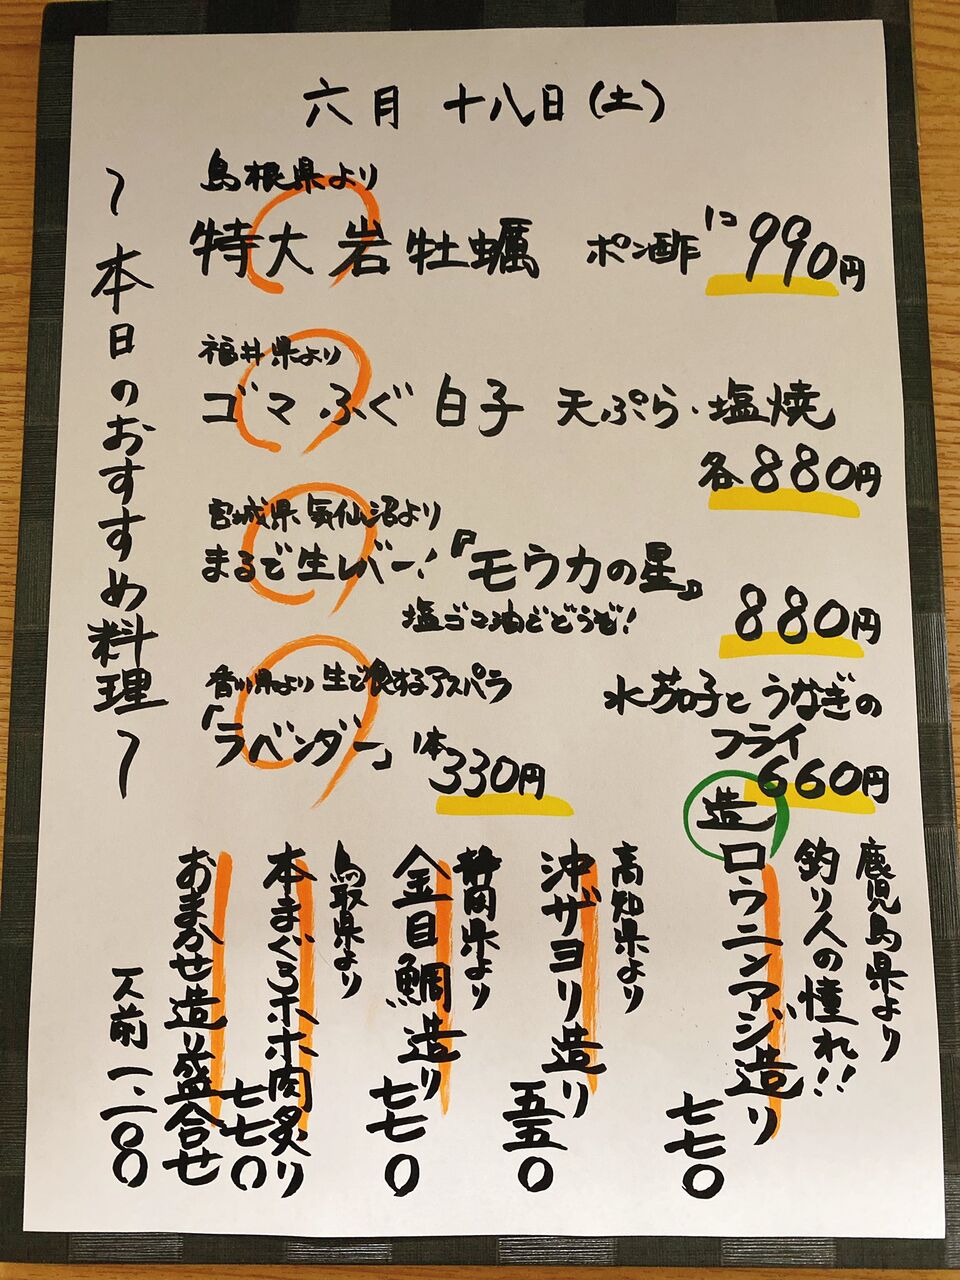 六月 十八日(土)
~本日のおすすめ料理~
島根県より
特大岩牡蠣 ポン酢 1コ 990円
福井県より
ゴマふぐ 白子 天ぷら・塩焼
各880円
宮城県気仙沼より
まるで生レバー!『モウカの星』
塩ゴマ油でどうぞ!
880円
香川県より 生で食するアスパラ
「ラベンダー」 1本 330円
水茄子とうなぎの
フライ
660円
造
鹿児島県より
釣り人の憧れ!!
ロウニンアジ造り
七七〇
高知県より
沖ザヨリ造り
五五〇
静岡県より
金目鯛造り
七七〇
鳥取県より
本まぐろホホ肉炙り
七七〇
おまかせ造り盛合せ
一人前 一、一〇〇